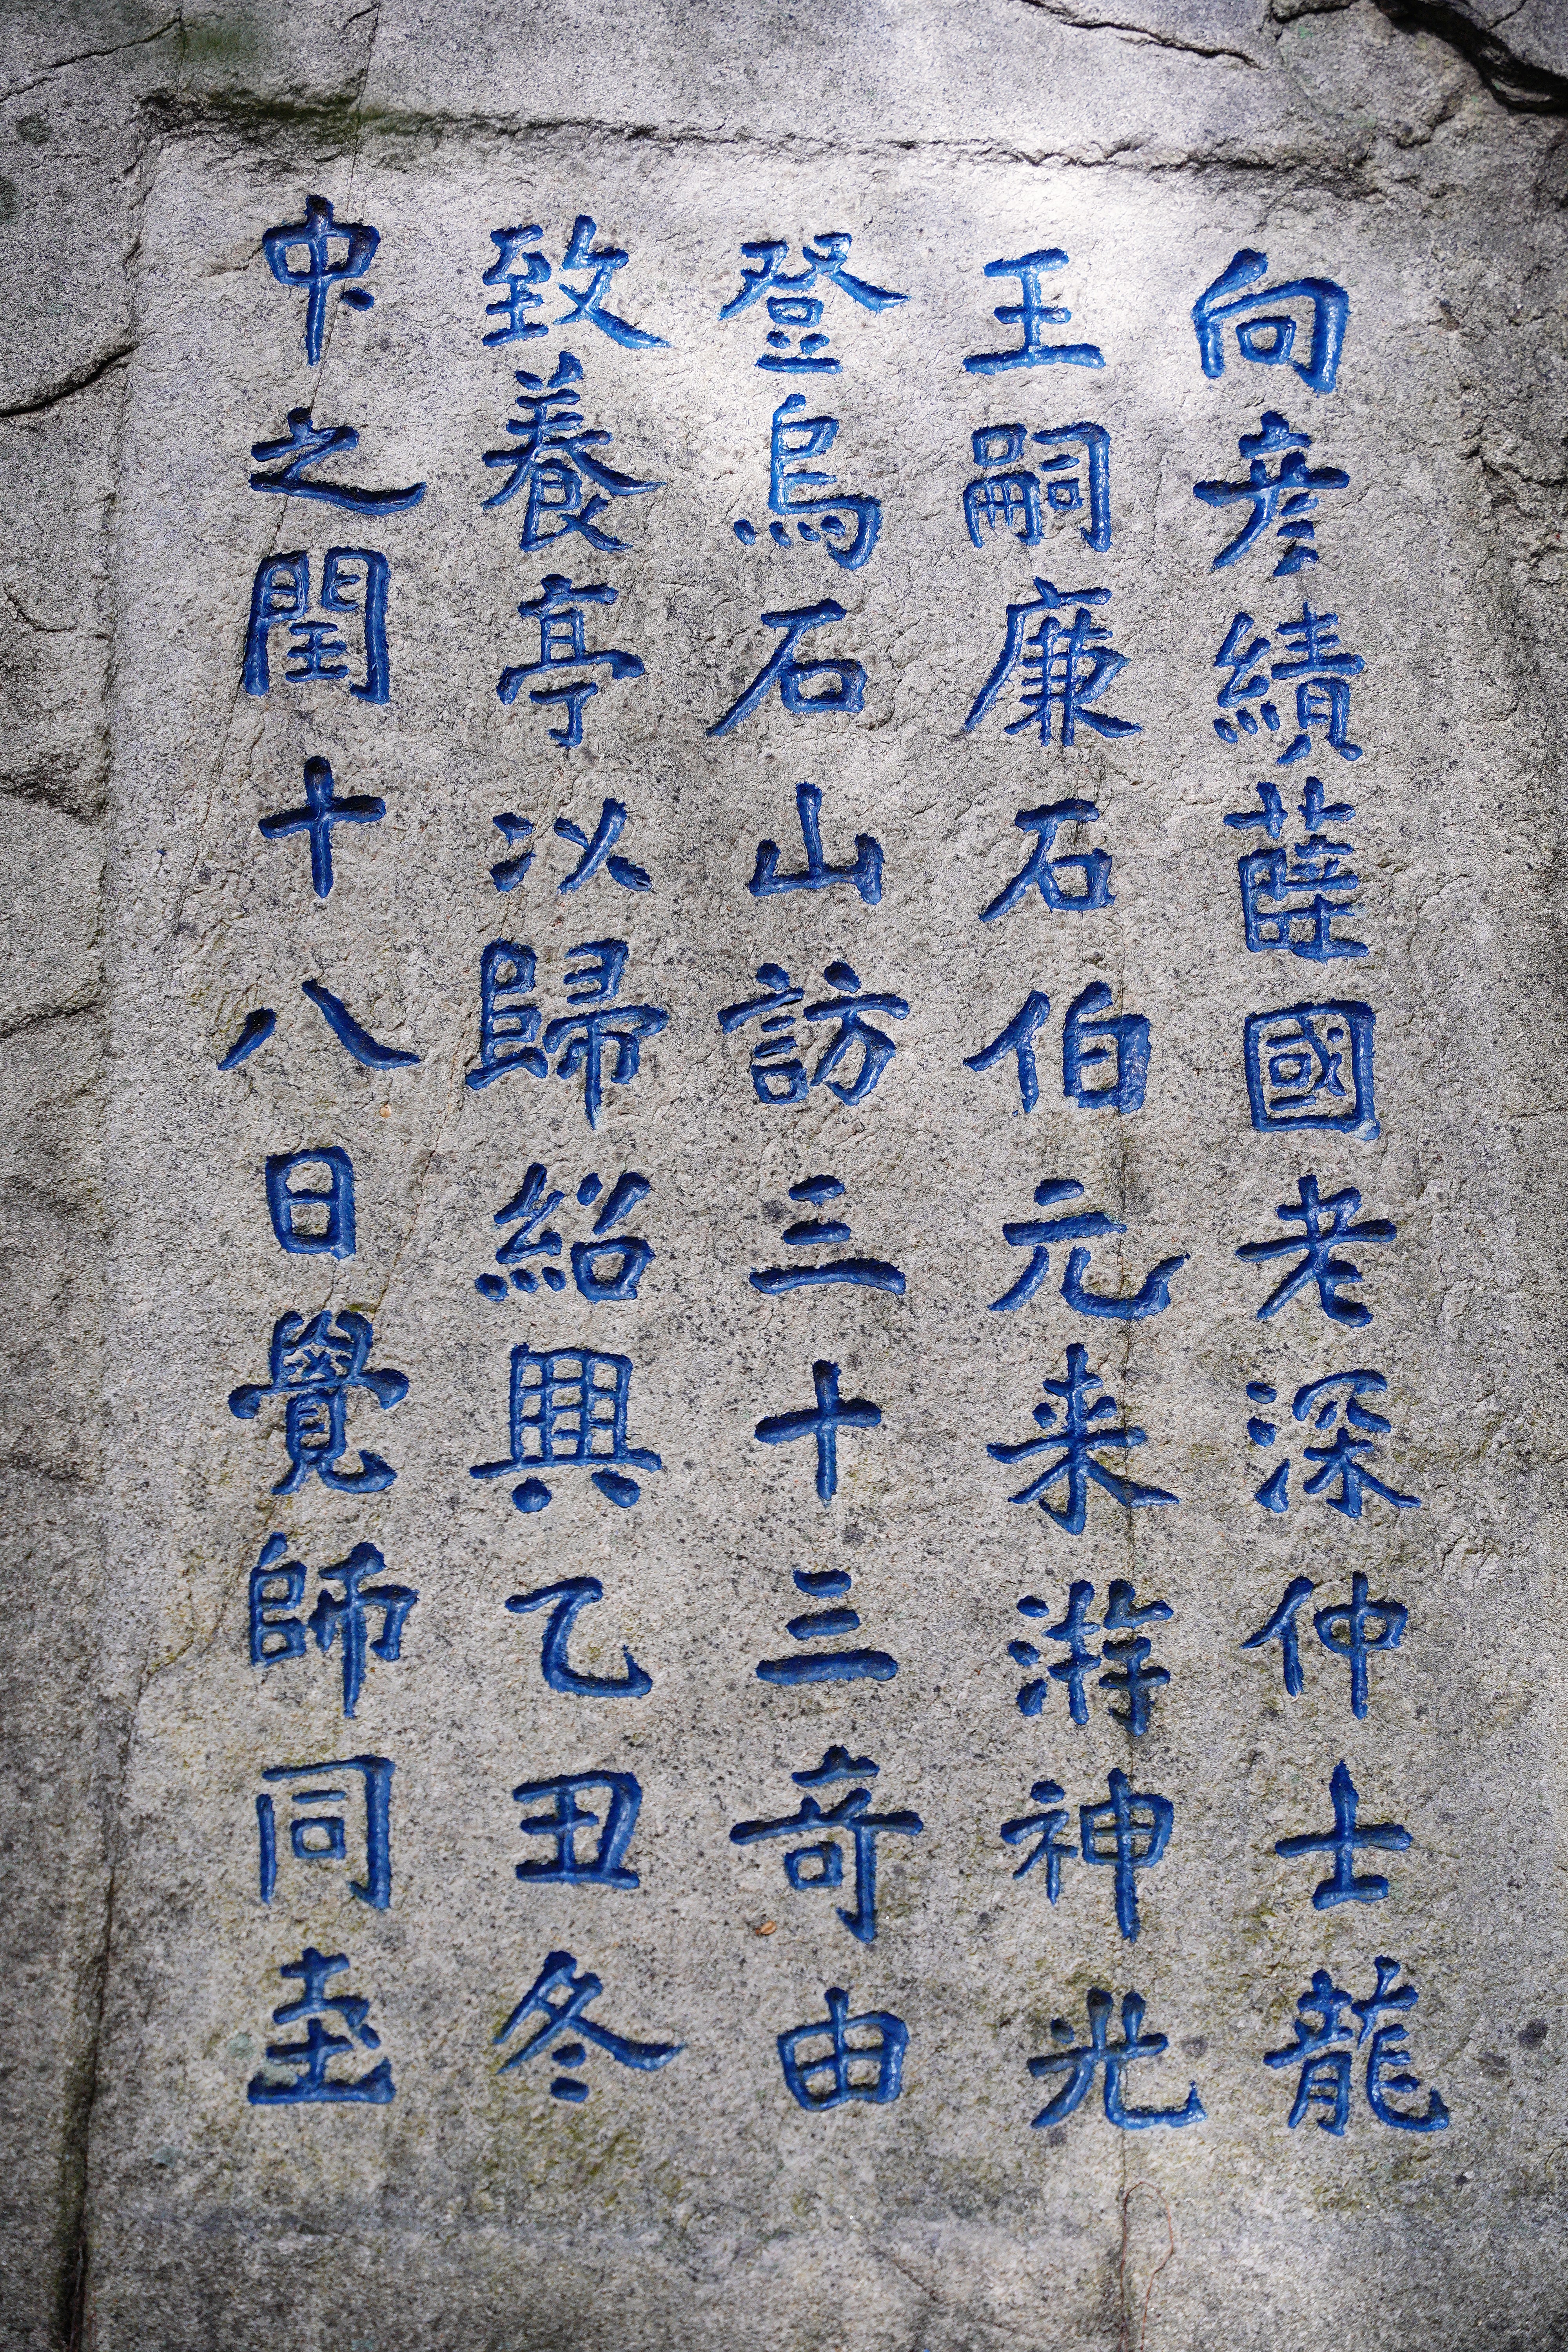 向彦績薛國老深仲士龍
王嗣廉石伯元来游神光
登烏石山訪三十三奇由
致養亭以歸紹興乙丑冬
中之閏十八日覺師同至